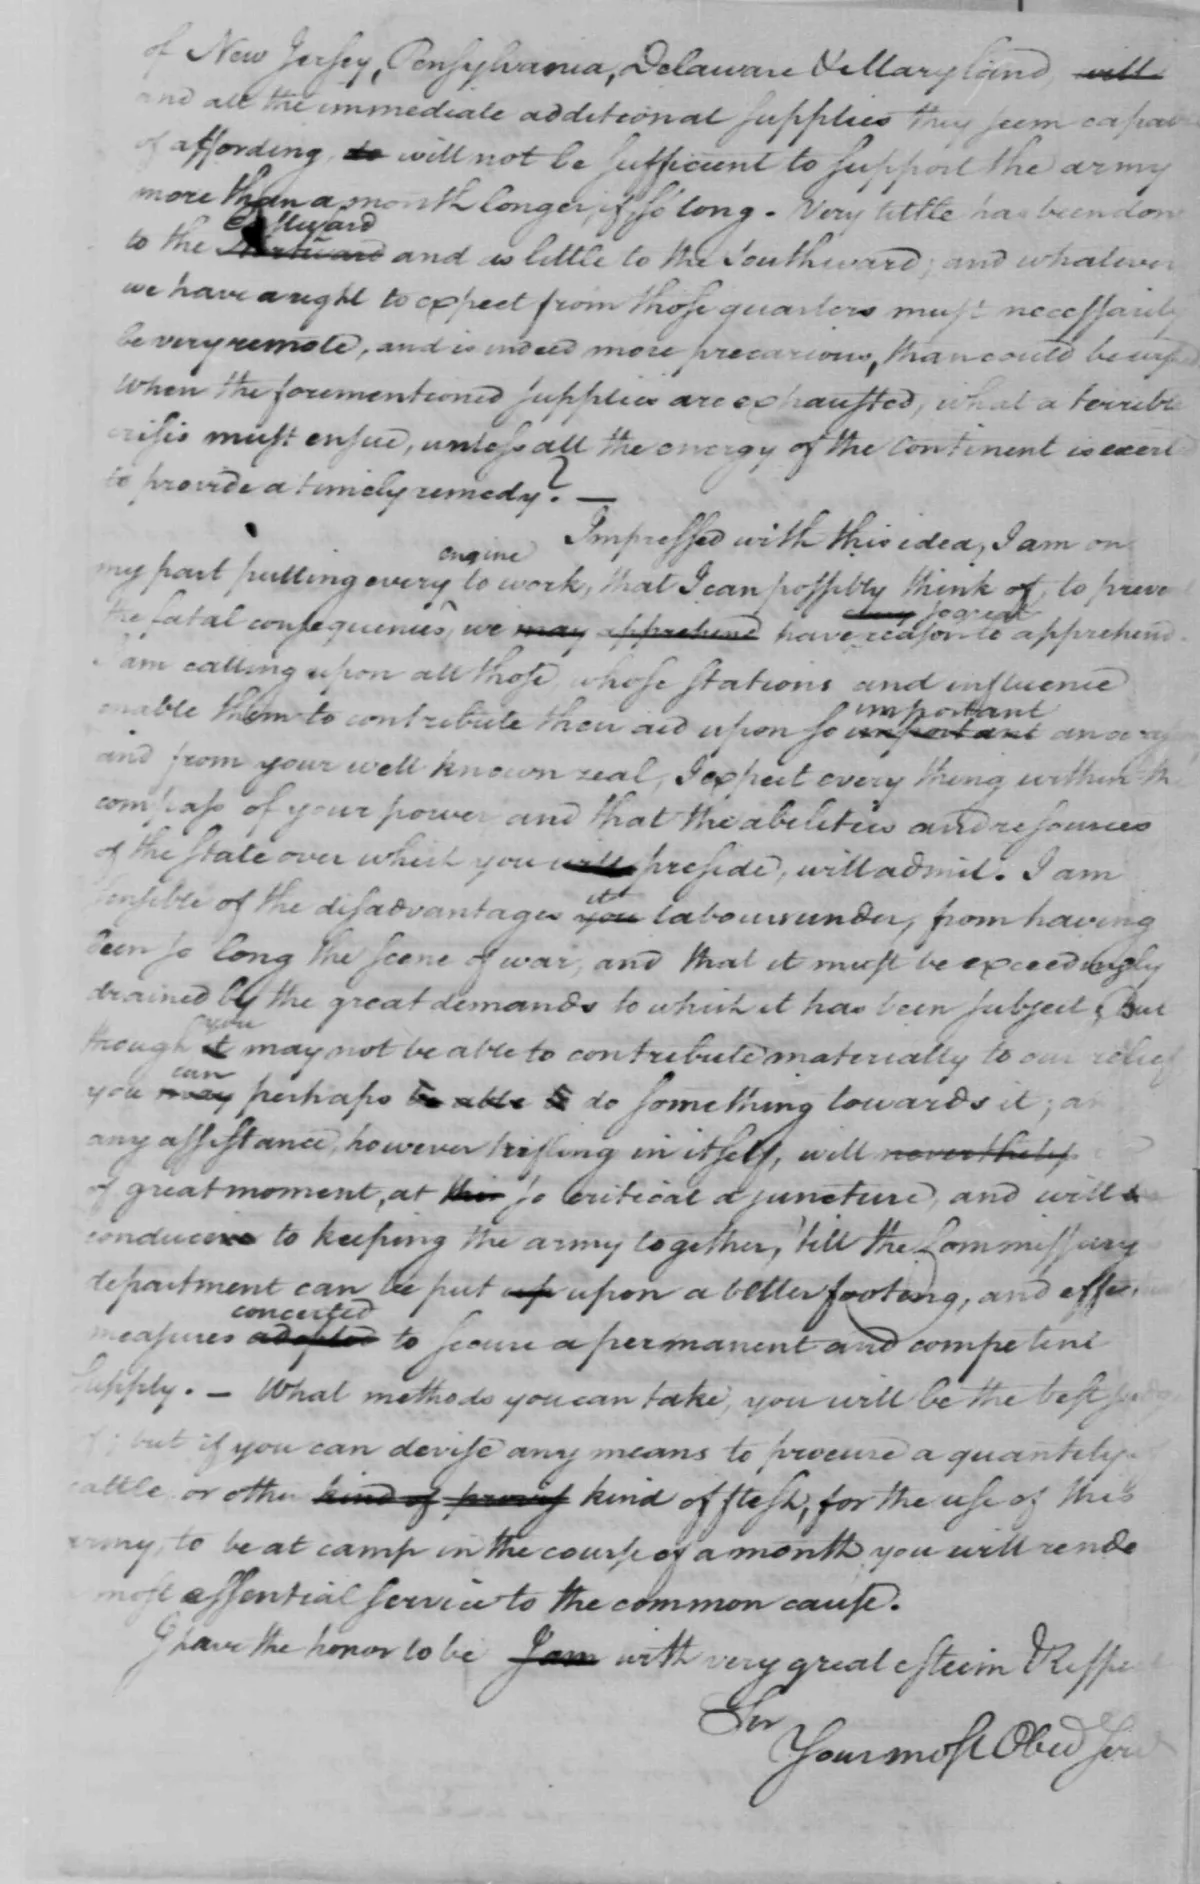 of New Jersey, Pensylvania, Delaware & Maryland, will
and all the immediate additional supplies they seem
of affording, to will not be sufficient to support the army
more than a month longer, if so long. Very little has been done
Eastward
to the Northward and as little to the Southward; and whatever
we have a right to expect from those quarters must necessarily
be very remote, and is indeed more precarious, than could be
When the forementioned supplies are exhausted, what a terrible
crisis must ensue, unless all the energy of the Continent is
to provide a timely remedy? —
Impressed with this idea, I am on
engine
my part putting every to work, that I can possibly think of, to
the fatal consequences, we may apprehend have reason to apprehend.
so great
I am calling upon all those, whose stations and influence
important
enable them to contribute their aid upon so important an
and from your well known zeal, I expect every thing within the
compass of your power and that the abilities and resources
of the state over which you will preside, will admit. I am
it
sensible of the disadvantages you labours under, from having
been so long the scene of war, and that it must be exceedingly
drained by the great demands to which it has been subject; But
you
though it may not be able to contribute materially to our relief
can
you may perhaps be able to do something towards it;
any assistance, however trifling in itself, will nevertheless
of great moment, at this so critical a juncture, and will
conducive to keeping the army together, 'till the Commissary
department can be put up upon a better footing, and
concerted
measures adopted to secure a permanent and competent
Supply. — What methods you can take, you will be the best
of; but if you can devise any means to procure a quantity
cattle or other kind of provis kind of flesh, for the use of this
army, to be at camp in the course of a month you will
most essential service to the common cause.
I have the honor to be I am with very great esteem &
Sir
Your most Obed